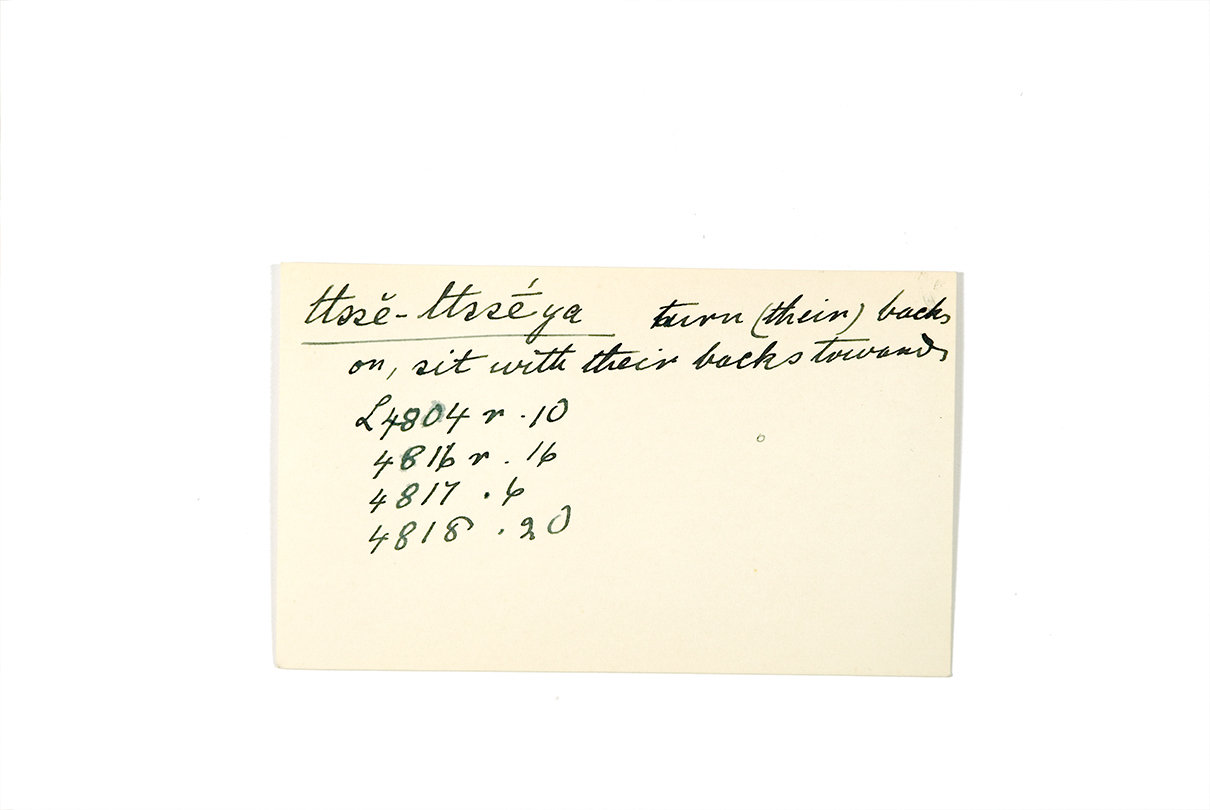 ttssĕ-ttsséya turn (their) backs
on, sit with their backs towards
L4804 r. 10
4816 r. 16
4817 . 6
4818 . 20